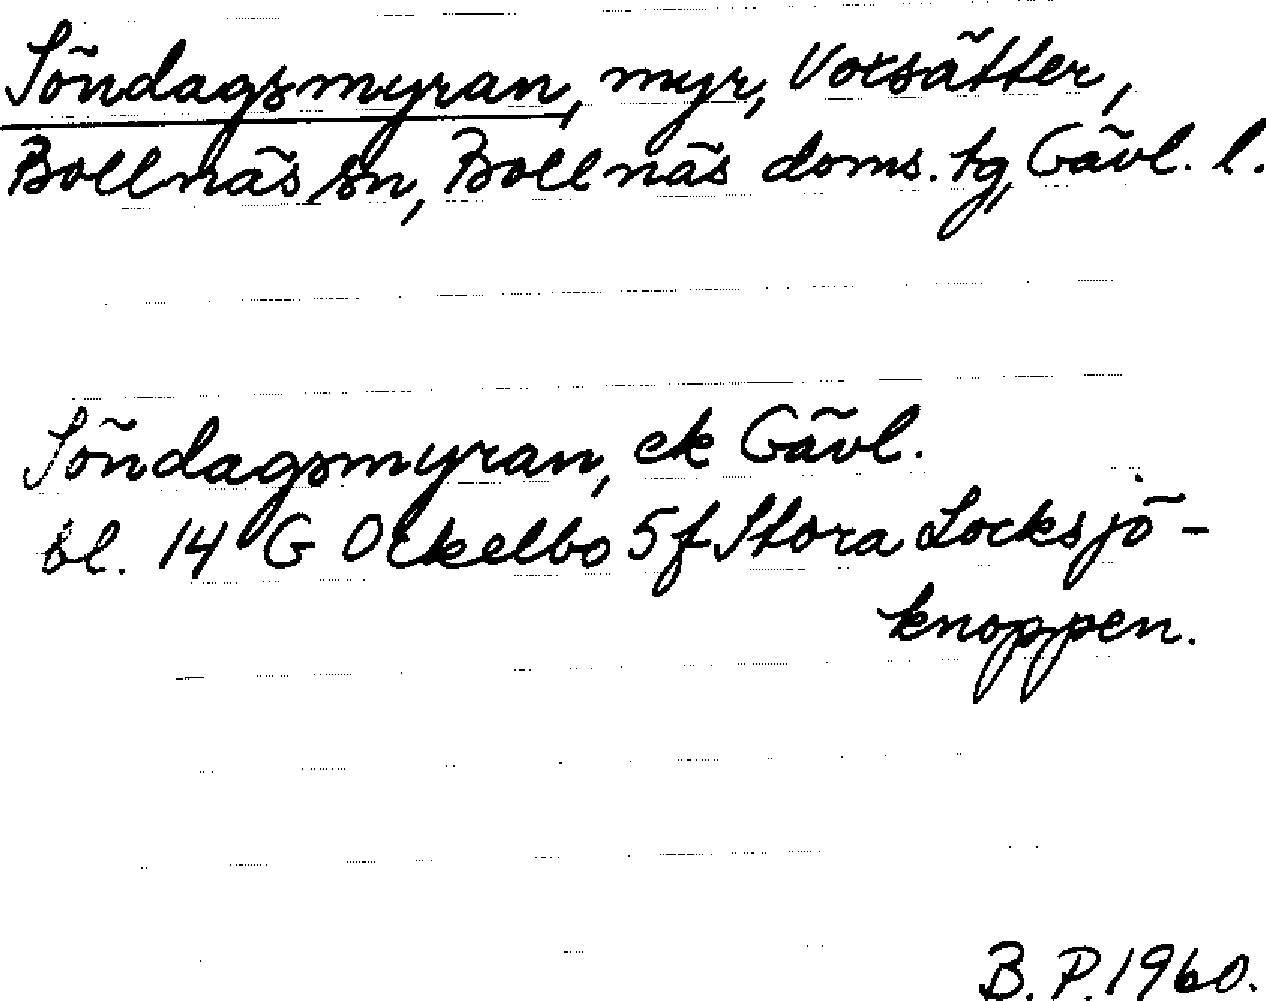 Söndagsmyran, myr, Voxsätter,
Bollnäs sn, Bollnäs doms. tg, Gävl. l.
Söndagsmyran, ek Gävl.
bl. 14 G Ockelbo 5 f Stora Locksjö-
knoppen.
B. P. 1960.